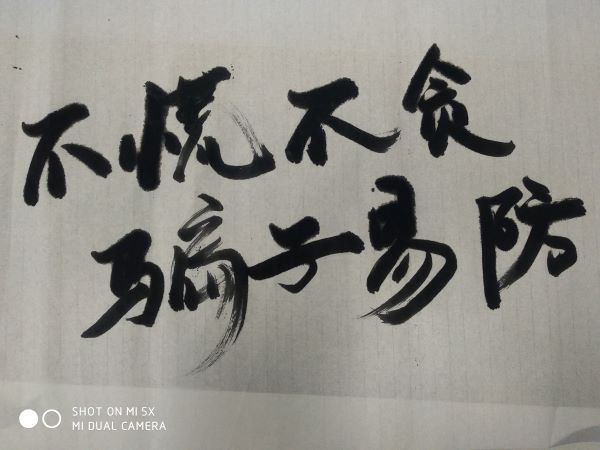 不慌不贪
骗子易防
SHOT ON MI 5X
MI DUAL CAMERA